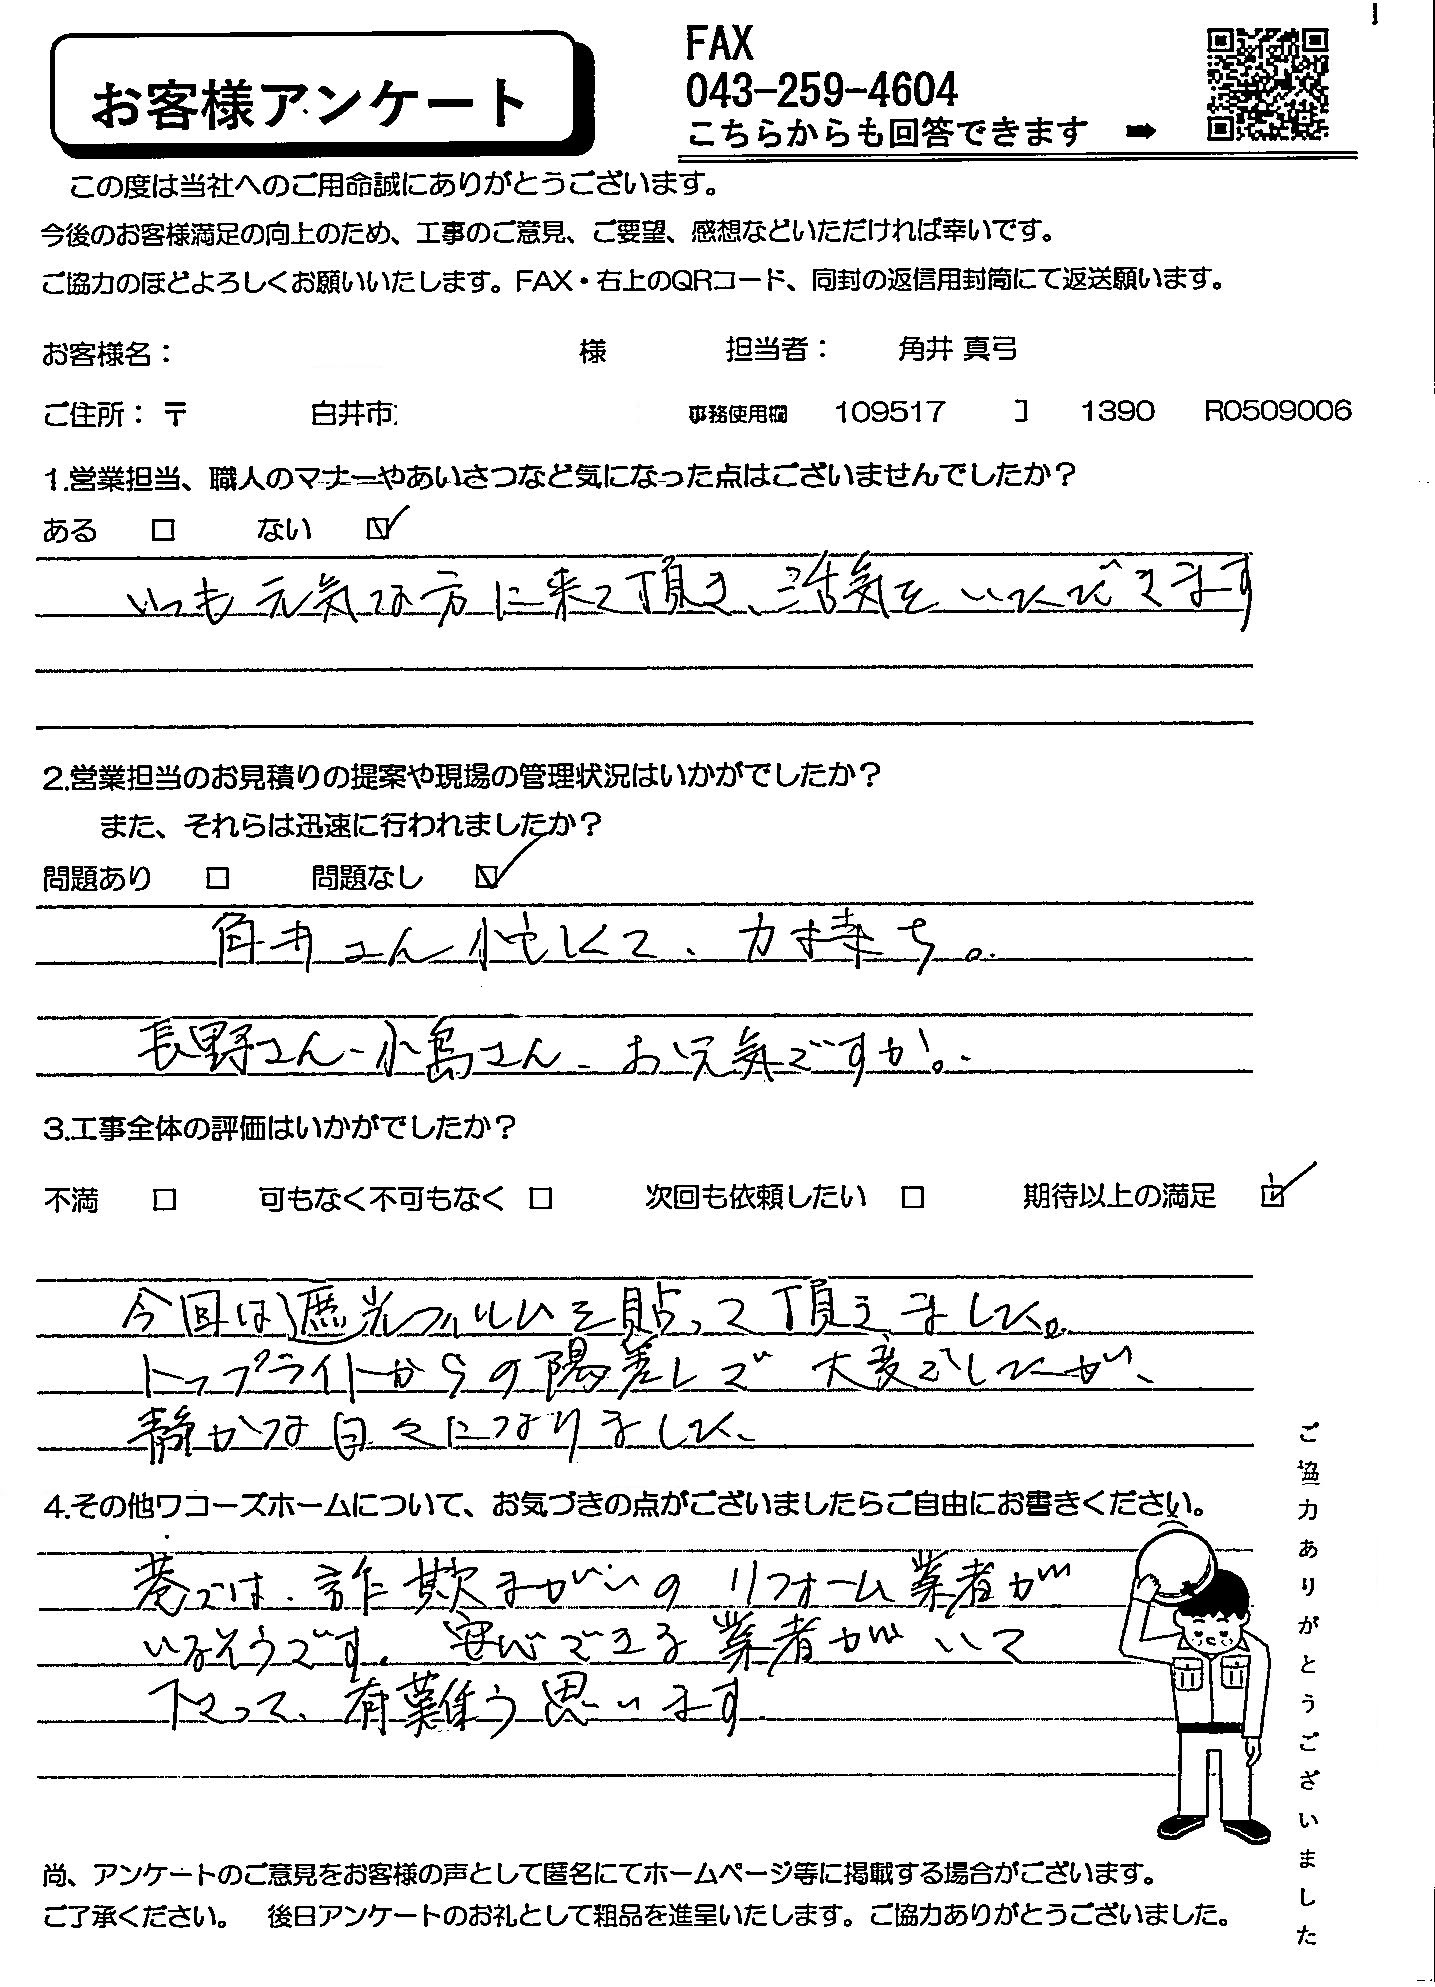 お客様アンケート
FAX
043-259-4604
こちらからも回答できます ➡
この度は当社へのご用命誠にありがとうございます。
今後のお客様満足の向上のため、工事のご意見、ご要望、感想などいただければ幸いです。
ご協力のほどよろしくお願いいたします。FAX・右上のQRコード、同封の返信用封筒にて返送願います。
お客様名： 様 担当者： 角井 真弓
ご住所：〒 白井市 事務使用欄 109517 コ 1390 R0509006
1.営業担当、職人のマナーやあいさつなど気になった点はございませんでしたか？
ある □ ない ☑
いつも元気な方に来て頂き、活気をいただきます
2.営業担当のお見積りの提案や現場の管理状況はいかがでしたか？
また、それらは迅速に行われましたか？
問題あり □ 問題なし ☑
角井さん忙しくて、力持ち。
長野さん、小島さん、お元気ですか。
3.工事全体の評価はいかがでしたか？
不満 □ 可もなく不可もなく □ 次回も依頼したい □ 期待以上の満足 ☑
今回は遮光フィルムを貼って頂きました。
トップライトからの陽差しで大変でしたが、
静かな日々になりました、
4.その他ワコーズホームについて、お気づきの点がございましたらご自由にお書きください。
巷では、詐欺まがいのリフォーム業者が
いるそうです。安心できる業者がいて
下さって、有難う思います
ご協力ありがとうございました
尚、アンケートのご意見をお客様の声として匿名にてホームページ等に掲載する場合がございます。
ご了承ください。 後日アンケートのお礼として粗品を進呈いたします。ご協力ありがとうございました。